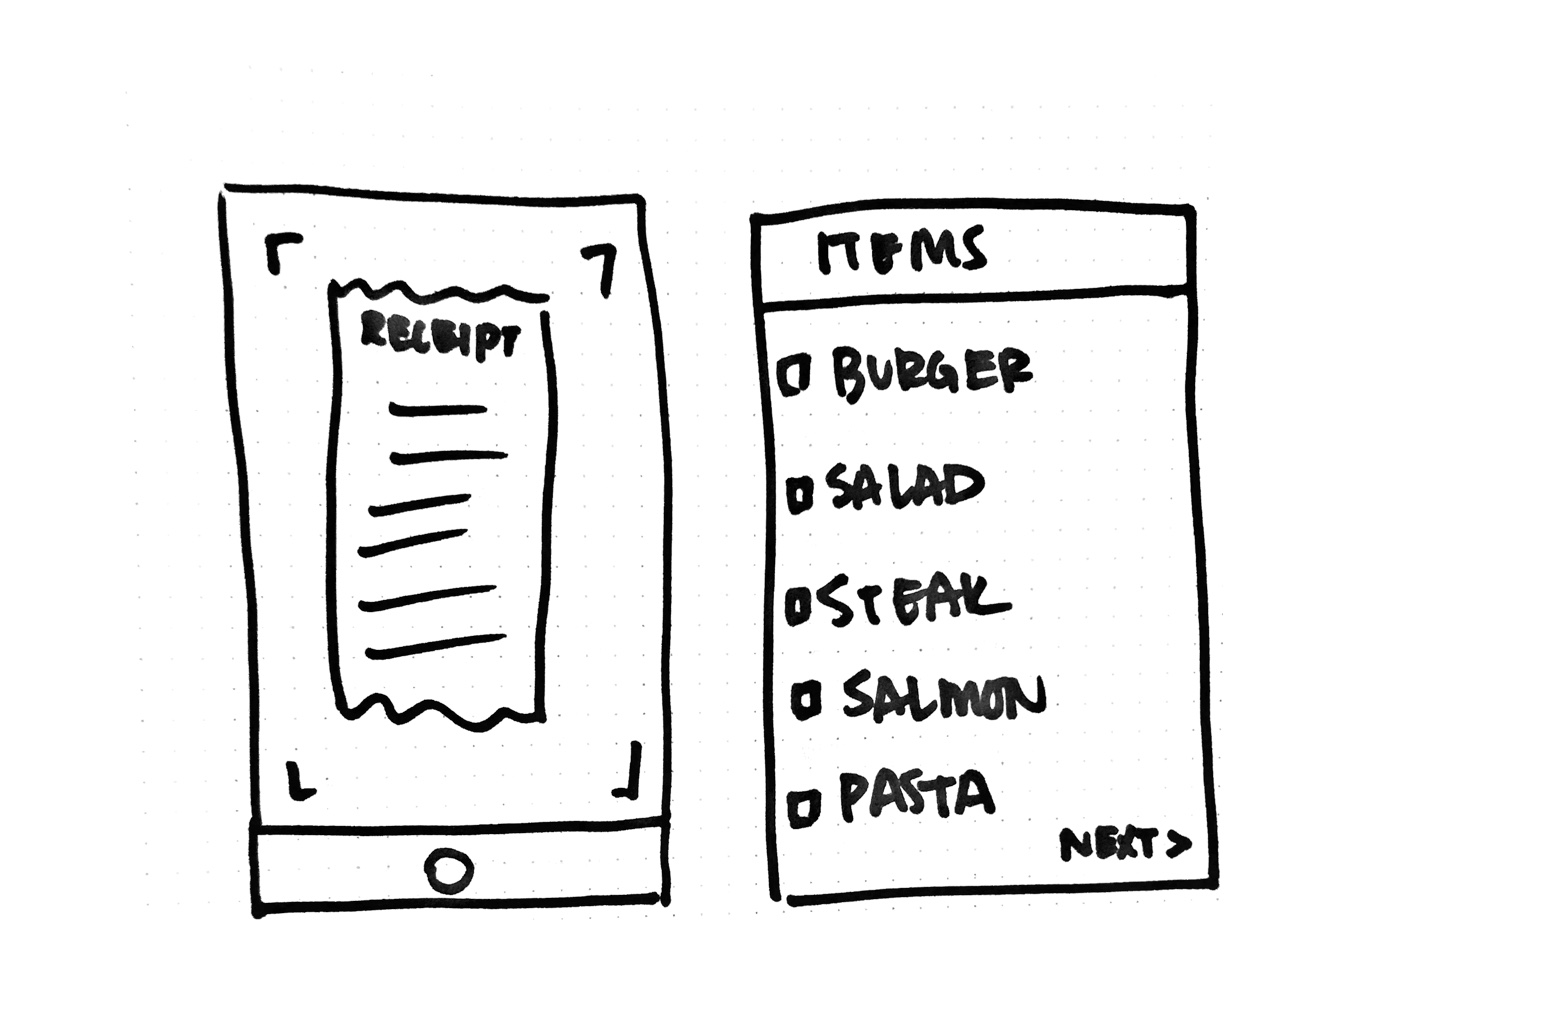 RECEIPT
ITEMS
BURGER
SALAD
STEAK
SALMON
PASTA
NEXT >